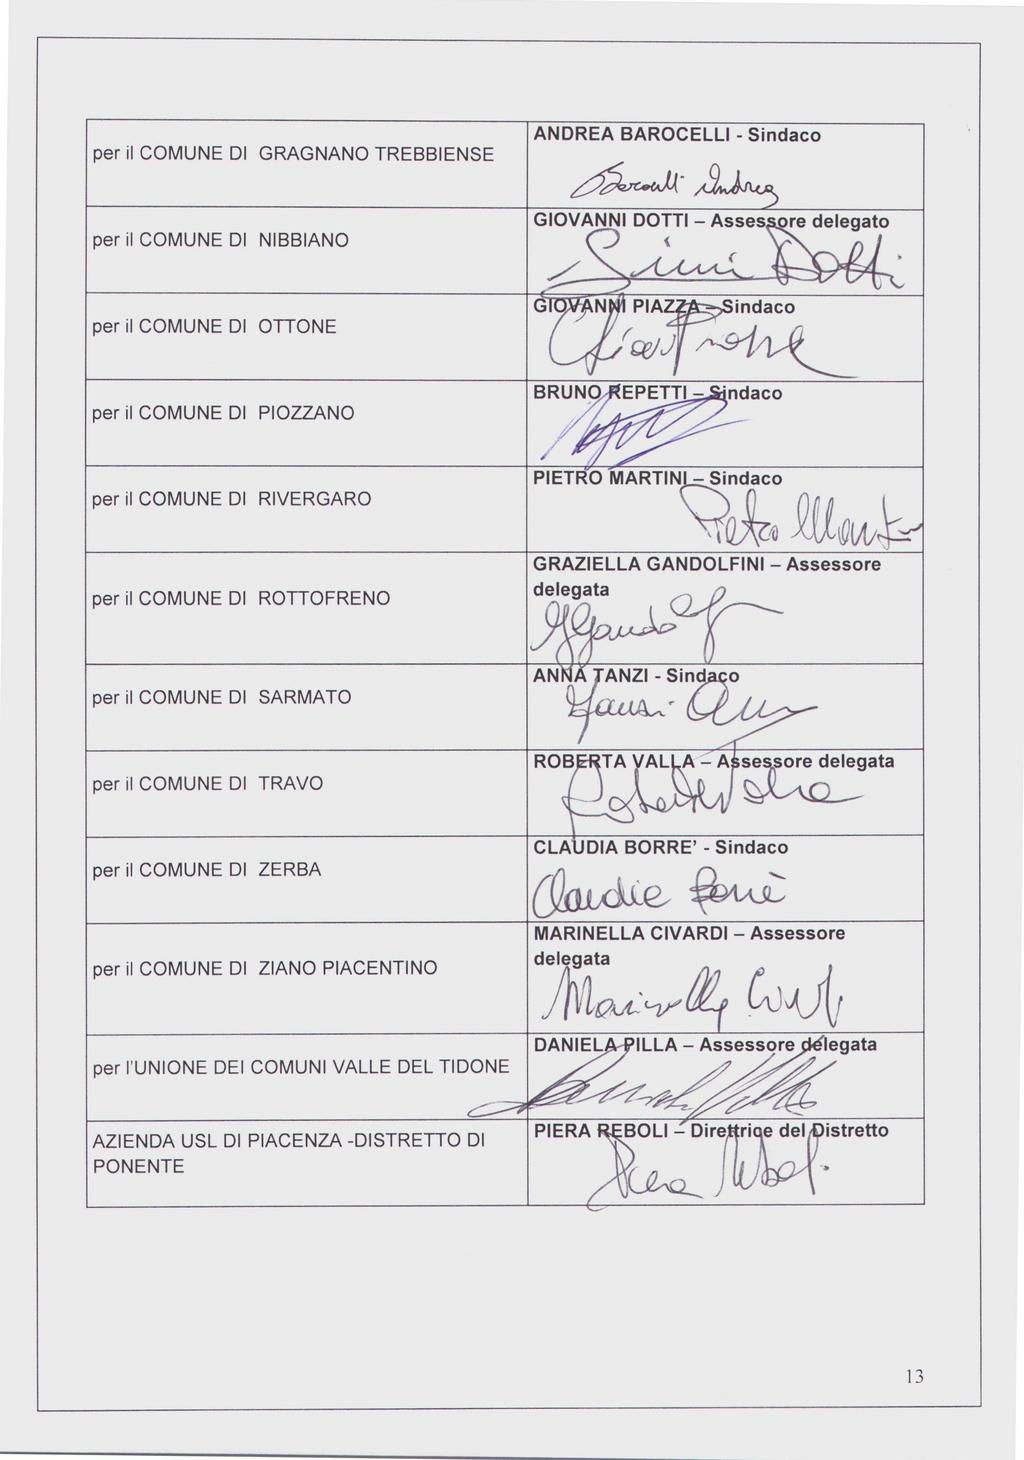 per il COMUNE DI GRAGNANO TREBBIENSE
ANDREA BAROCELLI - Sindaco
Barocelli Andrea
per il COMUNE DI NIBBIANO
GIOVANNI DOTTI – Assessore delegato
Dotti
per il COMUNE DI OTTONE
GIOVANNI PIAZZA – Sindaco
per il COMUNE DI PIOZZANO
BRUNO REPETTI – Sindaco
per il COMUNE DI RIVERGARO
PIETRO MARTINI – Sindaco
Pietro Martini
per il COMUNE DI ROTTOFRENO
GRAZIELLA GANDOLFINI – Assessore
delegata
per il COMUNE DI SARMATO
ANNA TANZI - Sindaco
Tanzi Anna
per il COMUNE DI TRAVO
ROBERTA VALLA – Assessore delegata
Roberta Valla
per il COMUNE DI ZERBA
CLAUDIA BORRE' - Sindaco
Claudia Borrè
per il COMUNE DI ZIANO PIACENTINO
MARINELLA CIVARDI – Assessore
delegata
Marinella Civardi
per l'UNIONE DEI COMUNI VALLE DEL TIDONE
DANIELA PILLA – Assessore delegata
AZIENDA USL DI PIACENZA -DISTRETTO DI
PONENTE
PIERA REBOLI – Direttrice del Distretto
Piera Reboli
13